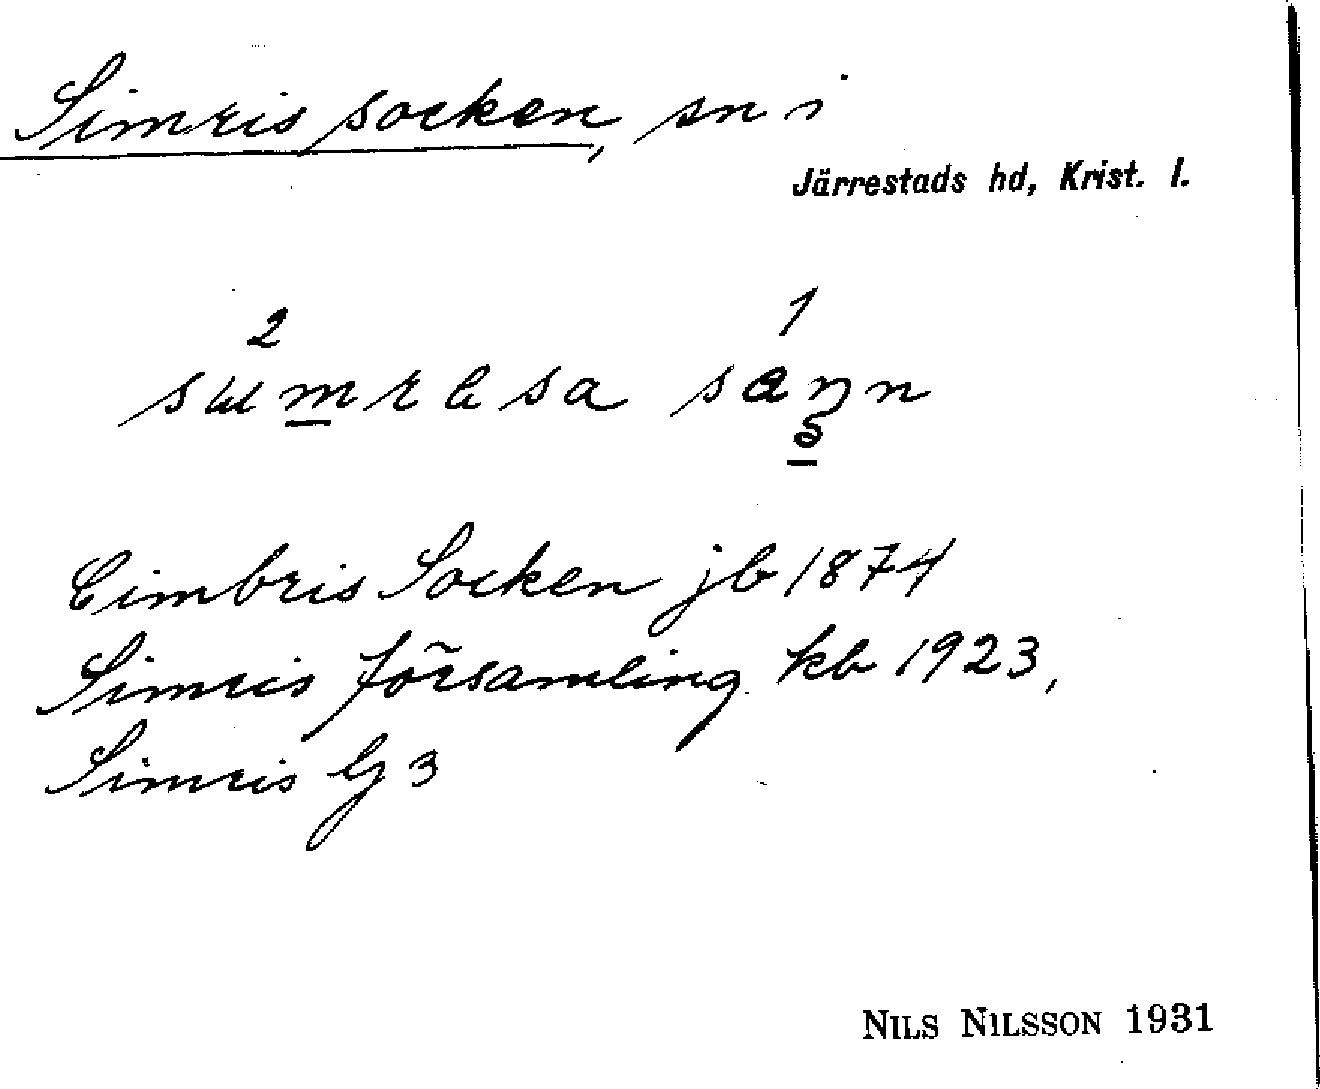 Simris socken, sn i
Järrestads hd, Krist. l.
2 1
Cimbris Socken jb 1874
Simris församling kb 1923,
Simris G 3
NILS NILSSON 1931